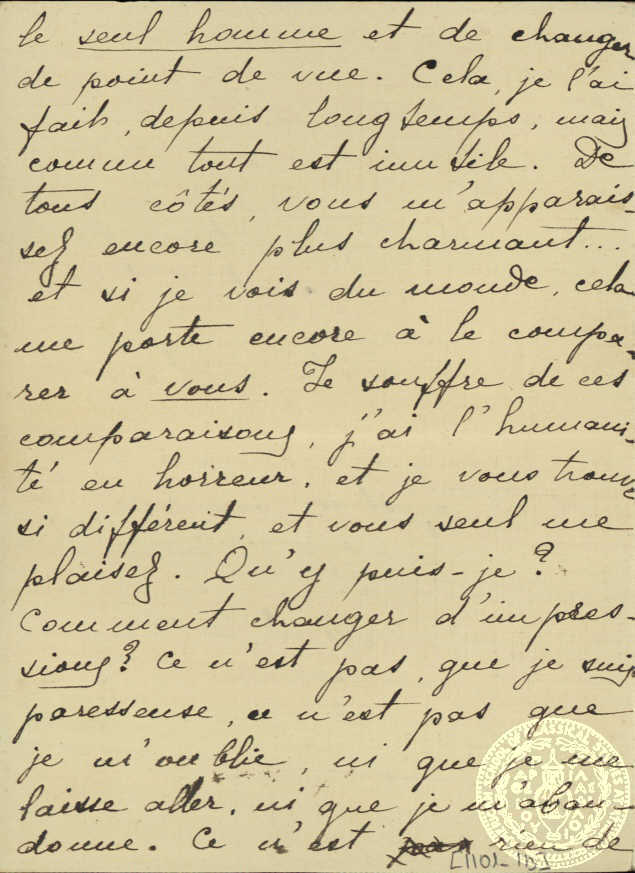 le seul homme et de changer
de point de vue. Cela, je l'ai
fait, depuis longtemps, mais
comme tout est inutile. De
tous côtés, vous m'apparais-
sez encore plus charmant...
et si je vois du monde, cela
me porte encore à le compa-
rer à vous. Je souffre de ces
comparaisons, j'ai l'humani-
té en horreur, et je vous trouve
si différent, et vous seul me
plaisez. Qu'y puis-je?
Comment changer d'impres-
sions? Ce n'est pas, que je suis
paresseuse, ce n'est pas que
je m'oublie, ni que je me
laisse aller, ni que je m'aban-
donne. Ce n'est pas rien de